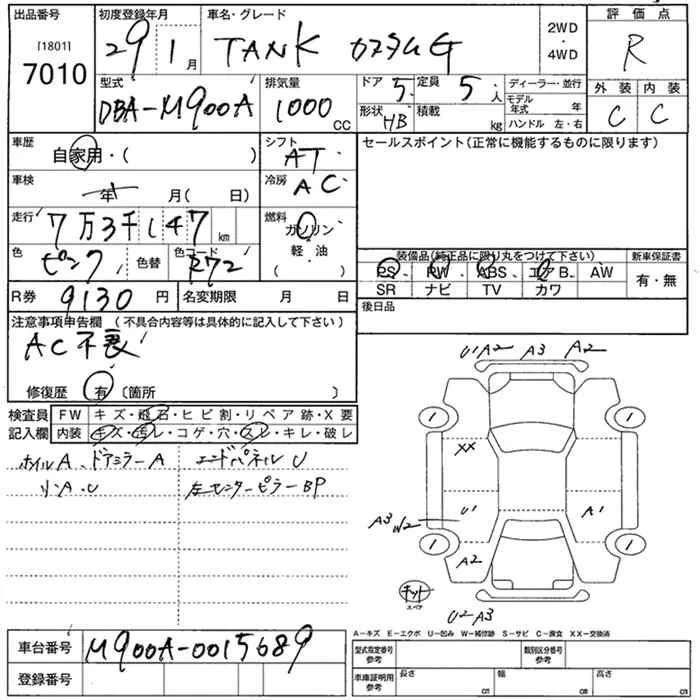 出品番号 初度登録年月 車名・グレード 評価点
[1801] 7010 29 1月 TANK カスタムG 2WD・4WD R
型式 排気量 ドア 定員 ディーラー・並行 外装 内装
DBA-M900A 1000CC 5 5人 モデル年式 年 C C
形状 HB 積載 kg ハンドル 左・右
車歴 シフト セールスポイント(正常に機能するものに限ります)
自家用・( ) AT
車検 年 月( 日) 冷房 AC
走行 7万3千147km 燃料 ガソリン・軽・油 ( )
色 ピンク 色替 色コード R72
装備品(純正品に限り丸をつけて下さい) 新車保証書
PS、PW、ABS、エアB、AW 有・無
SR ナビ TV カワ
R券 9130円 名変期限 月 日 後日品
注意事項申告欄(不具合内容等は具体的に記入して下さい)
AC不良
修復歴 有 〔箇所 〕
U1 A2 A3 A2
検査員 FW キズ・飛石・ヒビ割・リペア跡・X要
記入欄 内装 キズ・汚レ・コゲ・穴・スレ・キレ・破レ
1 1
ホイルA、ドアミラーA エンドパネルU
XX
リ.A.U 左センターピラーBP
A3 W2 U1 A1
1 1
A2
キット
スペア
U2 A3
A-キズ E-エクボ U-凹み W-補修跡 S-サビ C-腐食 XX-交換済
車台番号 M900A-0015689
型式指定番号 参考 類別区分番号 参考
登録番号 車庫証明用 参考 長さ cm 幅 cm 高さ cm